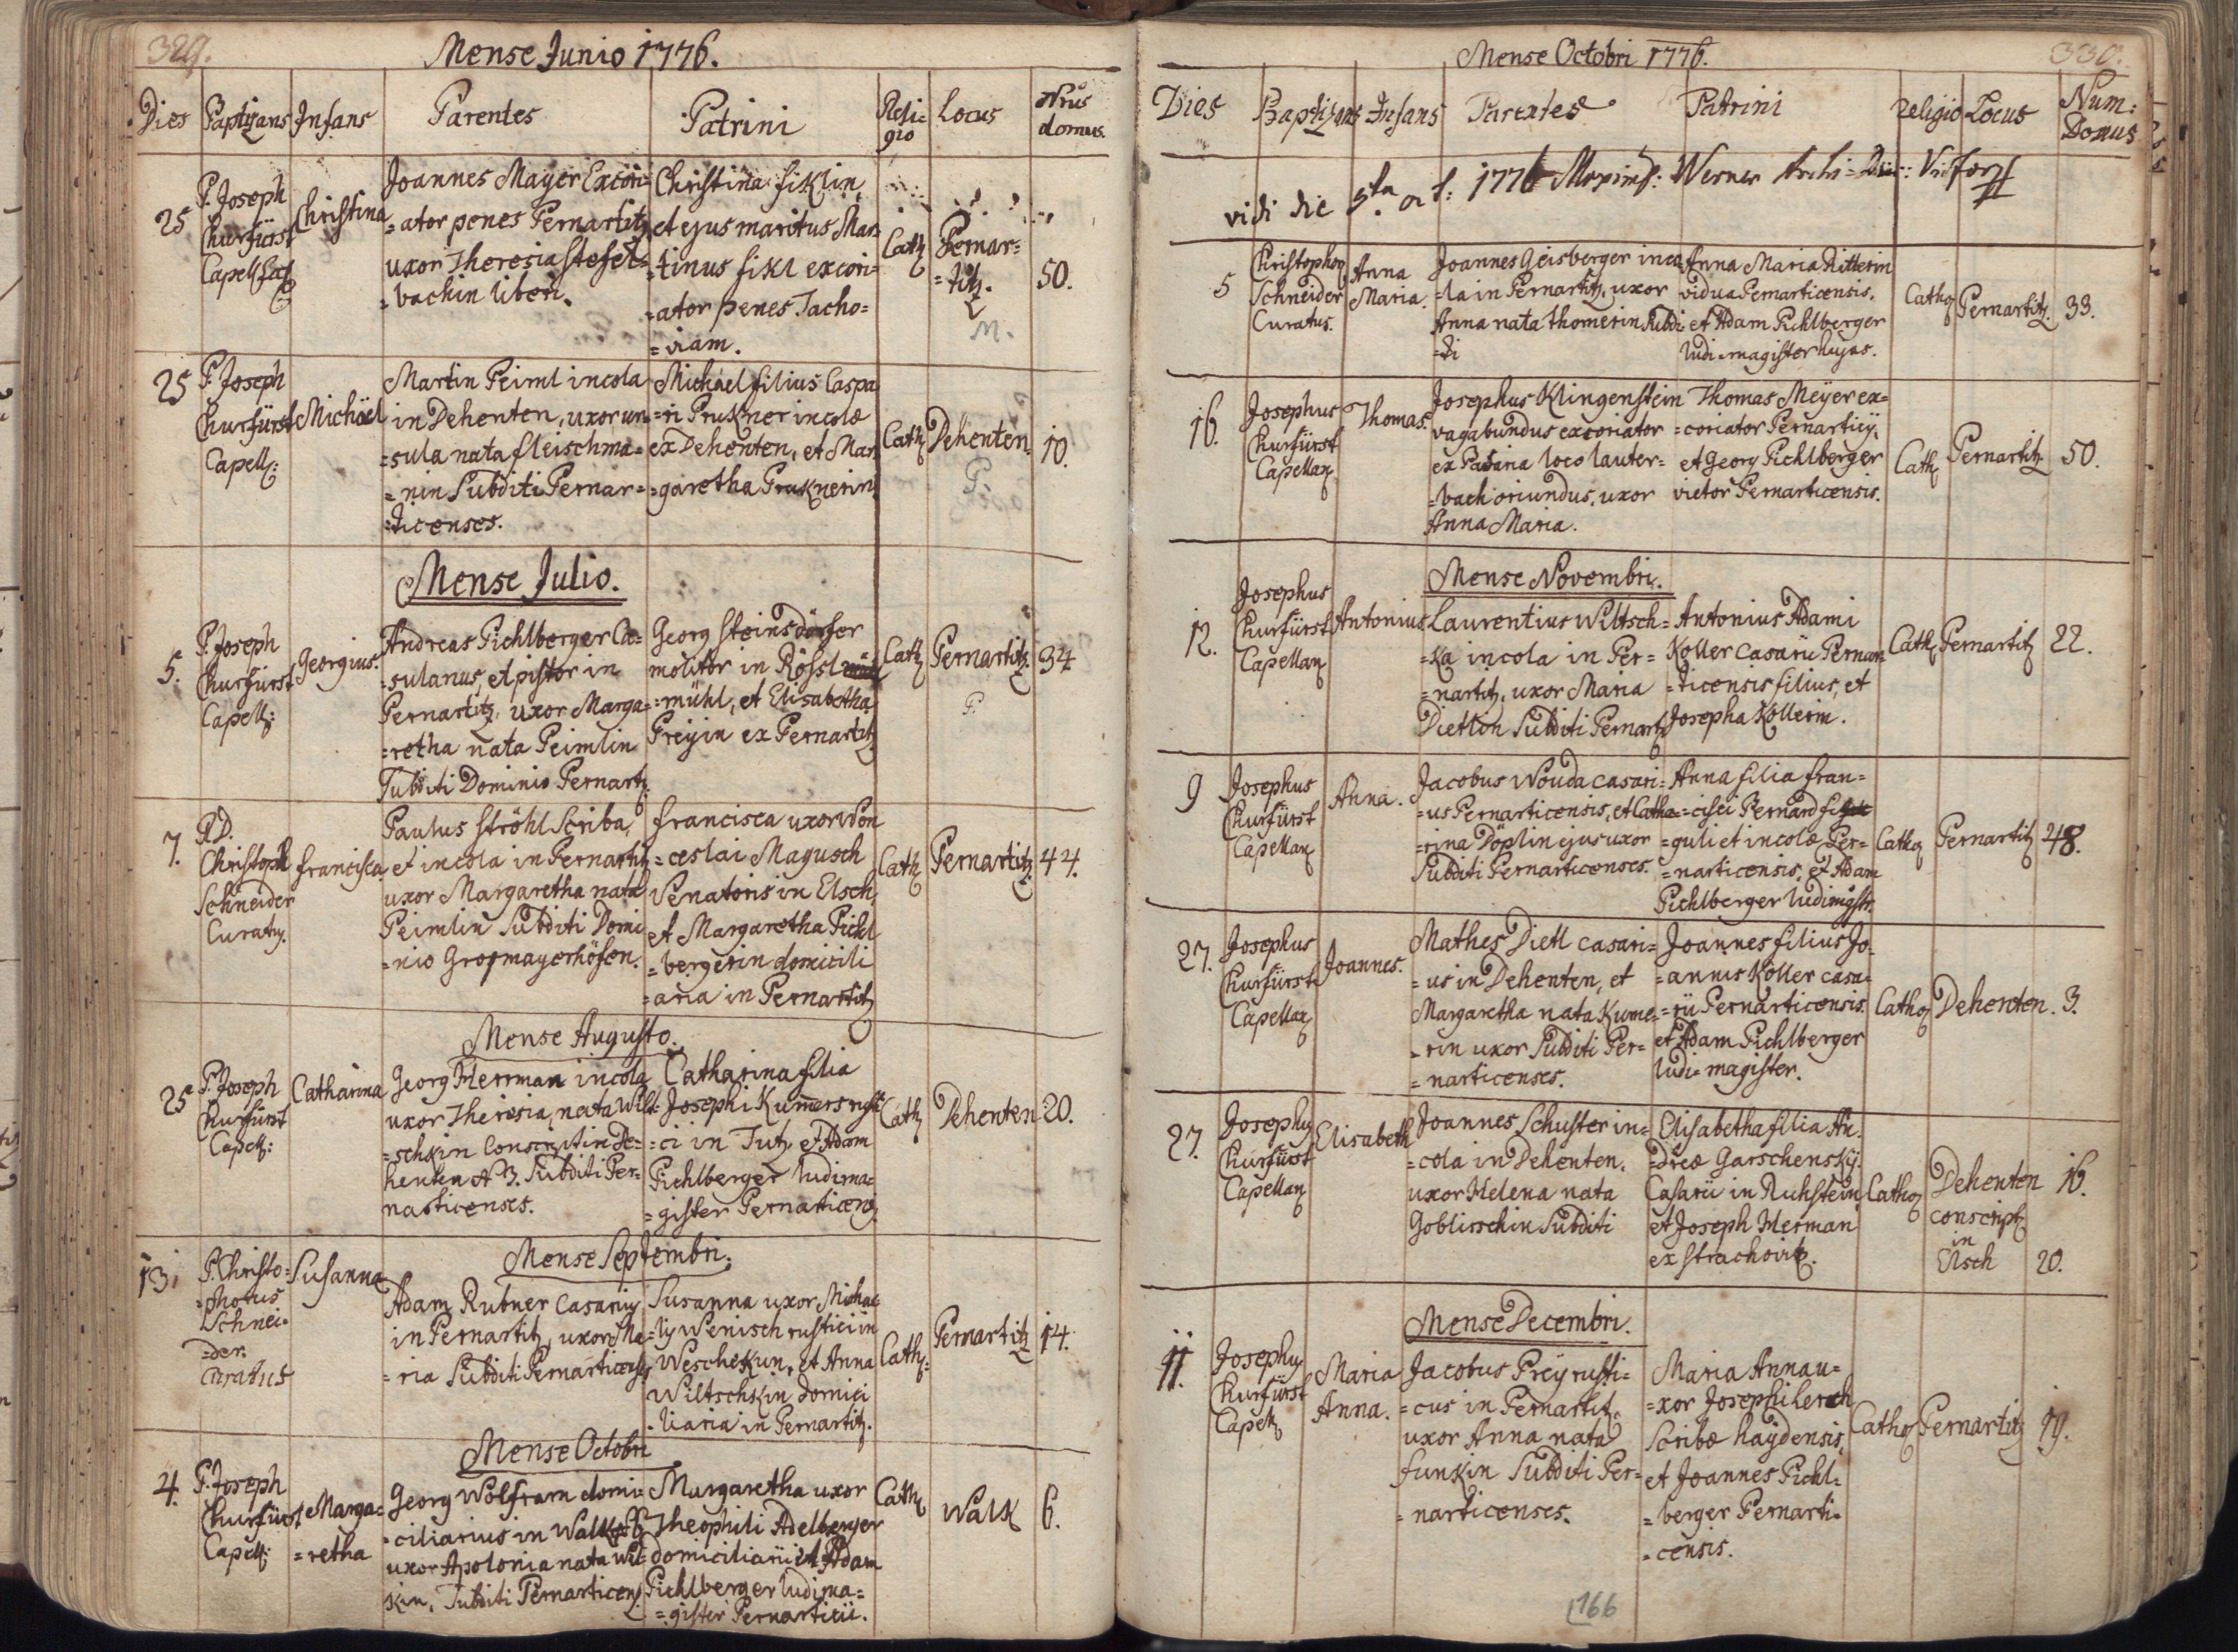 329.
Mense Junio 1776.
Dies Baptizans Infans Parentes Patrini Reli= Locus Nrus
gio domus.
25
P. Joseph
Churfürst
Capell Loc
Christina
Joannes Mayer Excori=
=ator penes Pernartitz,
uxor Theresia Stefel=
=bachin liberi.
Christina Fiklin,
et ejus maritus Mar=
=tinus Fikl excori=
=ator penes Tacho=
=viam.
Cath
Pernar=
=titz.
M.
50.
25
P. Joseph
Churfürst
Capell:
Michäel
Martin Peiml incola
in Dehenten, uxor ur=
=sula nata Fleischma=
=nin Subditi Pernar=
=ticenses.
Michäel filius Caspa
=ri Prukner incolæ
ex Dehenten, et Mar
=garetha Pruknerin
Cath
Dehenten
P.
10.
Mense Julio.
5.
P. Joseph
Churfürst
Capell:
Georgius.
Andreas Pichlberger Ca=
=sulanus, et pistor in
Pernartitz, uxor Marga=
=retha nata Peimlin
Subditi Dominio Pernart.
Georg Steinsdörfer
molitor in Rössl
=mühl, et Elisabetha
Preyin ex Pernartitz
Cath
Pernartitz.
P.
34
7.
P.D.
Christoph
Schneider
Curatus.
Francisca
Paulus Ströhl Scriba,
et incola in Pernartitz
uxor Margaretha nata
Peimlin Subditi Domi
=nio Grosmayerhöfen.
Francisca uxor Won
=ceslai Magusch
Venatoris in Elsch,
et Margaretha Pichl
=bergerin domicili
=aria in Pernartitz
Cath
Pernartitz.
44.
Mense Augusto.
25
P. Joseph
Churfürst
Capell:
Catharina
Georg Herrman incola
uxor Theresia, nata Wilt=
=schkin Conscript in De=
henten N 3. Subditi Per=
narticenses.
Catharina filia
Josephi Kumers rusti
=ci in Tutz, et Adam
Pichlberger ludima=
=gister Pernarticens.
Cath
Dehenten
20.
Mense Septembri.
13.
P. Christo=
=phorus
Schnei=
=der.
Curatus
Susanna
Adam Rubner casarius
in Pernartitz, uxor Ma=
=ria Subditi Pernarticenses
Susanna uxor Michae
=lis Wenisch rustici in
Weschekun, et Anna
Wiltschkin domici
=liaria in Pernartitz.
Cath:
Pernartitz
14.
Mense Octobri
4.
P. Joseph
Churfürst
Capell:
Marga=
=retha
Georg Wolfram domi=
=ciliarius in Walk
uxor Apolonia nata Wil
kin, Subditi Pernarticens.
Margaretha uxor
Theophili Adelberger
domiciliarii et Adam
Pichlberger ludima=
=gister Pernarticii.
Cath
Walk
6.
330.
Mense Octobri 1776.
Dies Baptizans Infans Parentes Patrini Religio Locus Num:
Domus
vidi die 5ta 1776 Werner Archi=
5
Christophor
Schneider
Curatus.
Anna
Maria.
Joannes Geisberger inco
=la in Pernartitz, uxor
Anna nata Thomerin Subdi
=ti
Anna Maria Ritterin
vidua Pernarticensis.
et Adam Pichlberger
ludi=magister hujas.
Catho
Pernartitz.
33.
16.
Josephus
Churfürst
Capellan
Thomas.
Josephus Klingenstein
vagabundus excoriator
ex Pavaria loco Lauter=
=bach oriundus, uxor
Anna Maria.
Thomas Meyer ex=
=coriator Pernarticij,
et Georg Pichlberger
vietor Pernarticensis.
Cath
Pernartitz
50.
Mense Novembri.
12.
Josephus
Churfürst
Capellan
Antonius
Laurentius Wiltsch=
=ka incola in Per=
=nartitz, uxor Maria
Dietlin Subditi Pernart
Antonius Adami
Koller casarii Pernar=
=ticensis filius, et
Josepha Kollerin.
Cath
Pernartitz
22.
9
Josephus
Churfürst
Capellan
Anna.
Jacobus Wouda casari=
=us Pernarticensis, et Catha=
=rina Döplin ejus uxor
Subditi Pernarticenses.
Anna filia Fran=
=cisci Pernard fi
=guli et incolæ Per=
=narticensis, et Adam
Pichlberger ludimgstr.
Catho
Pernartitz
48.
27.
Josephus
Churfürst
Capellan
Joannes.
Mathes Dietl casari=
=us in Dehenten, et
Margaretha nata Kume=
=rin uxor Subditi Per=
=narticenses.
Joannes filius Jo=
=annis Köller casa=
=rii Pernarticensis.
et Adam Pichlberger
ludi=magister.
Catho
Dehenten.
3.
27.
Josephus
Churfürst
Capellan
Elisabeth
Joannes Schuster in=
=cola in Dehenten,
uxor Helena nata
Goblisschin Subditi
Elisabetha filia An=
=dreæ Garschensky
Casarii in Ruhstein,
et Joseph Herman
ex Strachovitz.
Catho
Dehenten
conscript
in
Elsch
16.
20.
Mense Decembri.
11.
Josephus
Churfürst
Capell
Maria
Anna.
Jacobus Prey rusti=
=cus in Pernartitz,
uxor Anna nata
Funkin Subditi Per=
=narticenses.
Maria Anna u=
=xor Josephi Lerch
Scribæ haydensis,
et Joannes Pichl=
=berger Pernarti=
=censis.
Catho
Pernartitz
19.
166